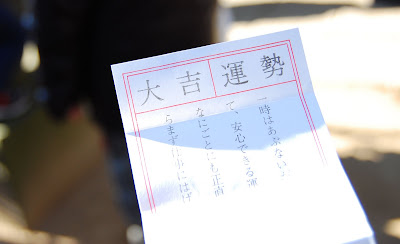 大吉 運勢
一時はあぶない
て、安心できる運
なにごとにも正直
らまず にはげ